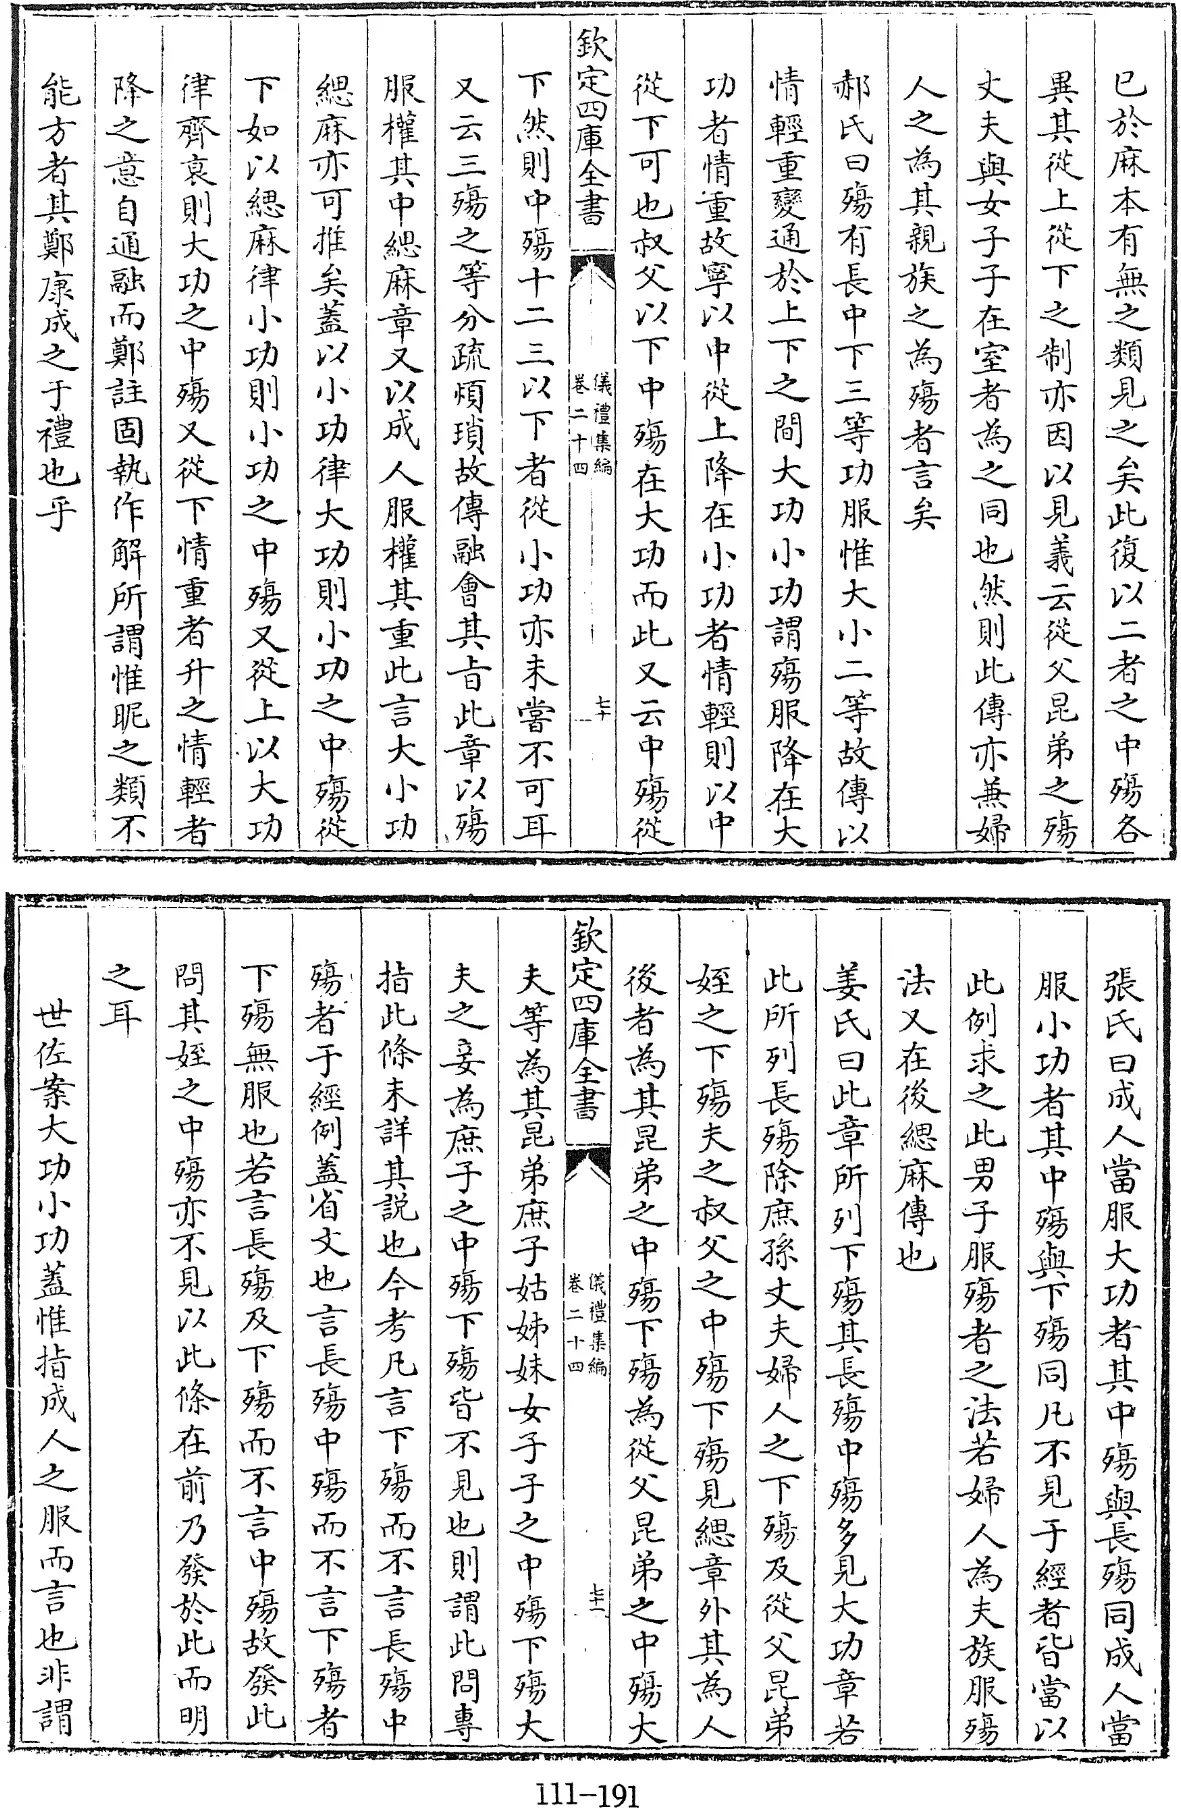 已於麻本有無之類見之矣此復以二者之中殤各
異其從上從下之制亦因以見義云從父昆弟之殤
丈夫與女子子在室者為之同也然則此傳亦兼婦
人之為其親族之為殤者言矣
郝氏曰殤有長中下三等功服惟大小二等故傳以
情輕重變通於上下之間大功小功謂殤服降在大
功者情重故寧以中從上降在小功者情輕則以中
從下可也叔父以下中殤在大功而此又云中殤從
欽定四庫全書
儀禮集編
卷二十四
七十
下然則中殤十二三以下者從小功亦未嘗不可耳
又云三殤之等分疏煩瑣故傳融會其旨此章以殤
服權其中緦麻章又以成人服權其重此言大小功
緦麻亦可推矣蓋以小功律大功則小功之中殤從
下如以緦麻律小功則小功之中殤又從上以大功
律齊衰則大功之中殤又從下情重者升之情輕者
降之意自通融而鄭註固執作解所謂惟昵之類不
能方者其鄭康成之于禮也乎
張氏曰成人當服大功者其中殤與長殤同成人當
服小功者其中殤與下殤同凡不見于經者皆當以
此例求之此男子服殤者之法若婦人為夫族服殤
法又在後緦麻傳也
姜氏曰此章所列下殤其長殤中殤多見大功章若
此所列長殤除庶孫丈夫婦人之下殤及從父昆弟
姪之下殤夫之叔父之中殤下殤見緦章外其為人
後者為其昆弟之中殤下殤為從父昆弟之中殤大
欽定四庫全書
儀禮集編
卷二十四
七十一
夫等為其昆弟庶子姑姊妹女子子之中殤下殤大
夫之妾為庶子之中殤下殤皆不見也則謂此問專
指此條未詳其說也今考凡言下殤而不言長殤中
殤者于經例蓋省文也言長殤中殤而不言下殤者
下殤無服也若言長殤及下殤而不言中殤故發此
問其姪之中殤亦不見以此條在前乃發於此而明
之耳
世佐案大功小功蓋惟指成人之服而言也非謂
111-191